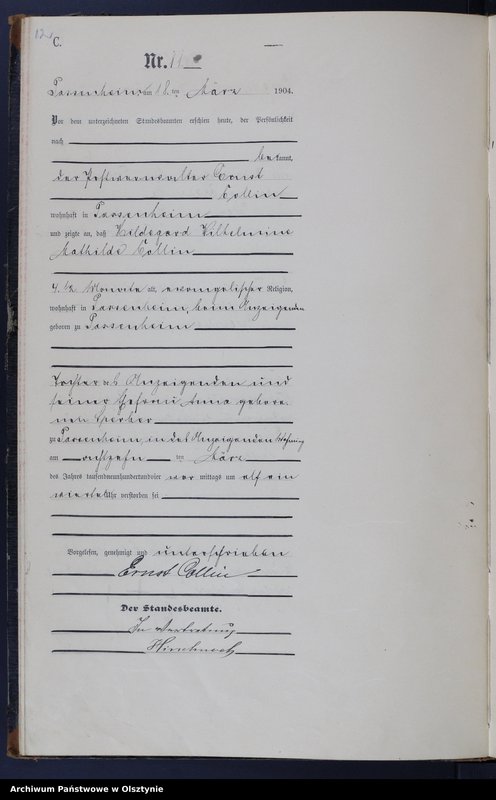 12
C.
Nr. 11
Passenheim am 18. ten März 1904.
Vor dem unterzeichneten Standesbeamten erschien heute, der Persönlichkeit
nach
bekannt,
der Postverwalter Ernst
Collin
wohnhaft in Passenheim
und zeigte an, daß Hildegard Wilhelmine
Mathilde Collin
4 1/2 Monate alt, evangelischer Religion,
wohnhaft in Passenheim, beim Anzeigenden
geboren zu Passenheim
Tochter des Anzeigenden und
seiner Ehefrau Anna gebore
nen
zu Passenheim, in des Anzeigenden Wohnung
am achtzehn ten März
des Jahres tausendneunhundertundvier vor mittags um elf ein
viertel Uhr verstorben sei
Vorgelesen, genehmigt und unterschrieben
Ernst Collin
Der Standesbeamte.
In Vertretung
Archiwum Państwowe w Olsztynie